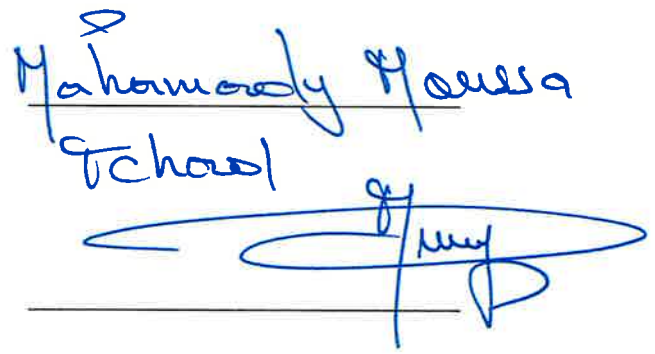 Mahamady Moussa
Tchad